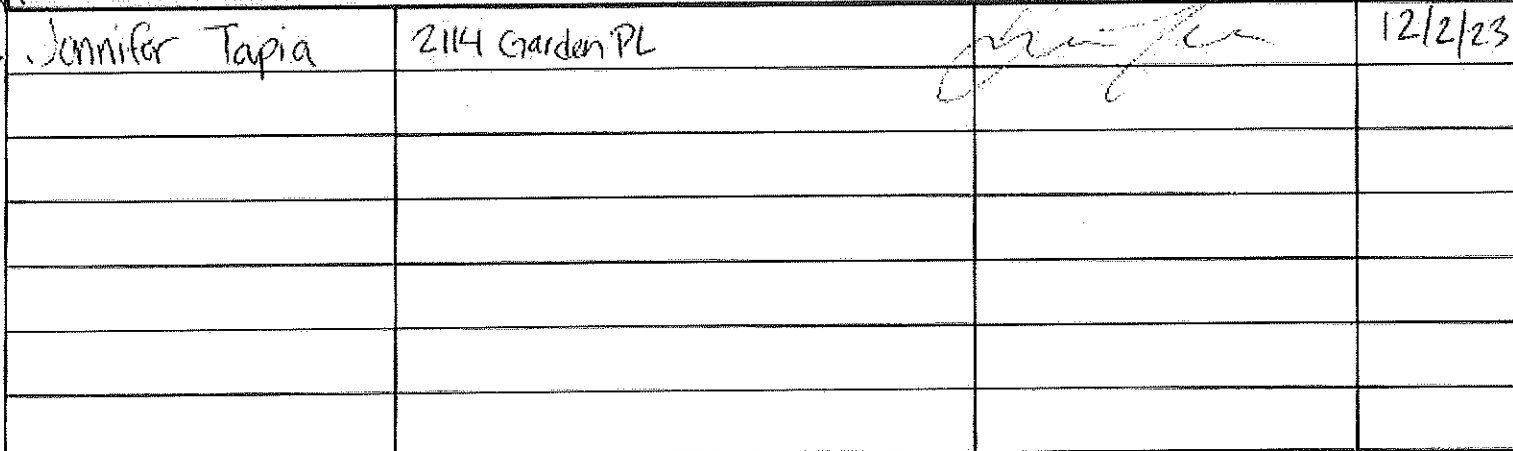 Jennifer Tapia 2114 Garden PL 12/2/23